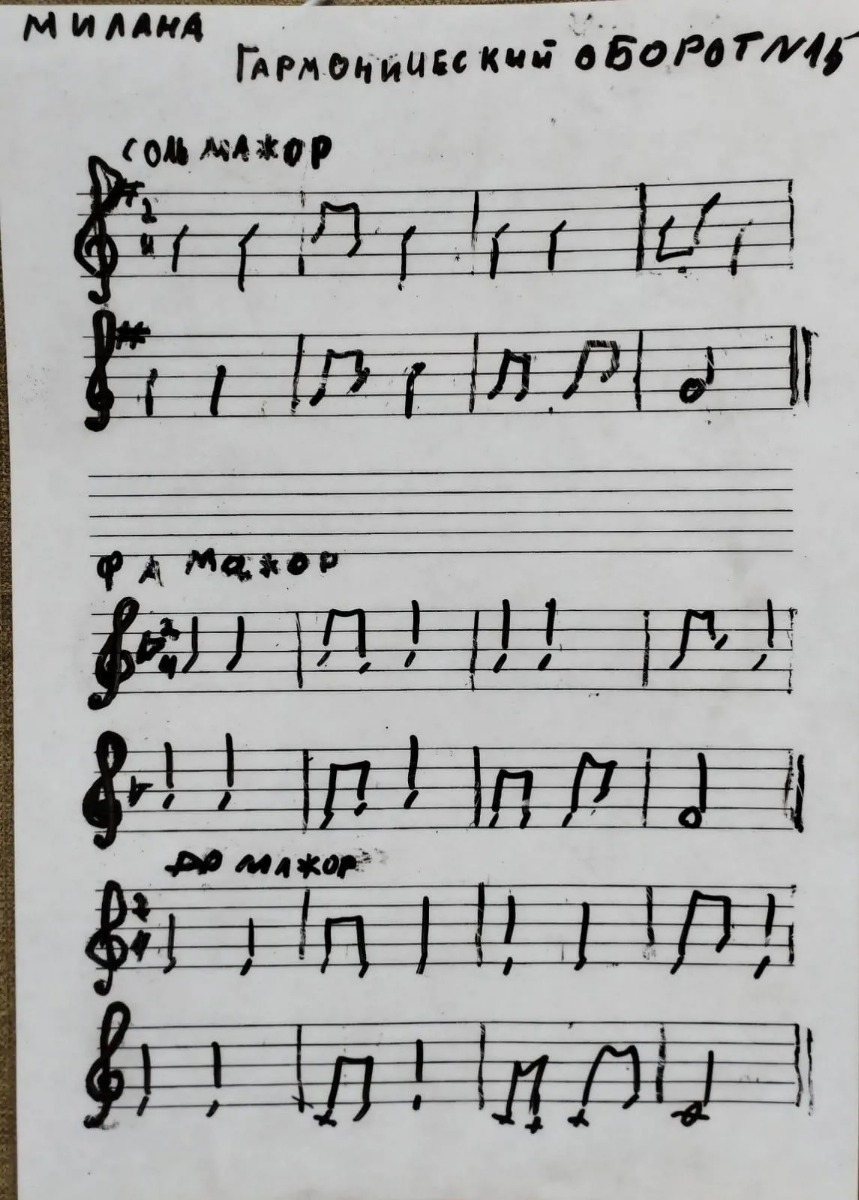 МИЛАНА
ГАРМОНИЧЕСКИЙ ОБОРОТ N15
СОЛЬ МАЖОР
2
4
ФА МАЖОР
2
4
ДО МАЖОР
2
4